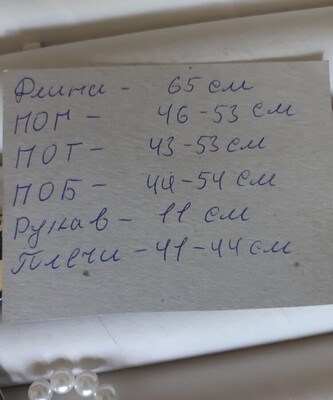 Длина - 65 см
ПОГ - 46-53 см
ПОТ - 43-53 см
ПОБ - 44-54 см
Рукав - 11 см
Плечи - 41-44 см